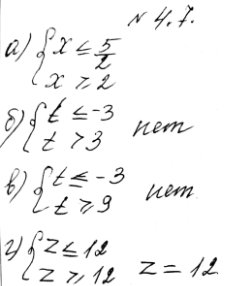 № 4.7.
а) { x ≤ 5/2
x ⩾ 2
б) { t ≤ -3
t > 3 нет
в) { t ≤ -3
t ⩾ 9 нет
г) { z ≤ 12
z ⩾ 12 z = 12